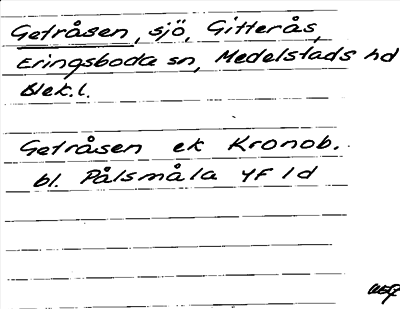 Getråsen, sjö, Gitterås,
Eringsboda sn, Medelstads hd
Blek.l.
Getråsen ek Kronob.
bl. Pålsmåla 4F 1d